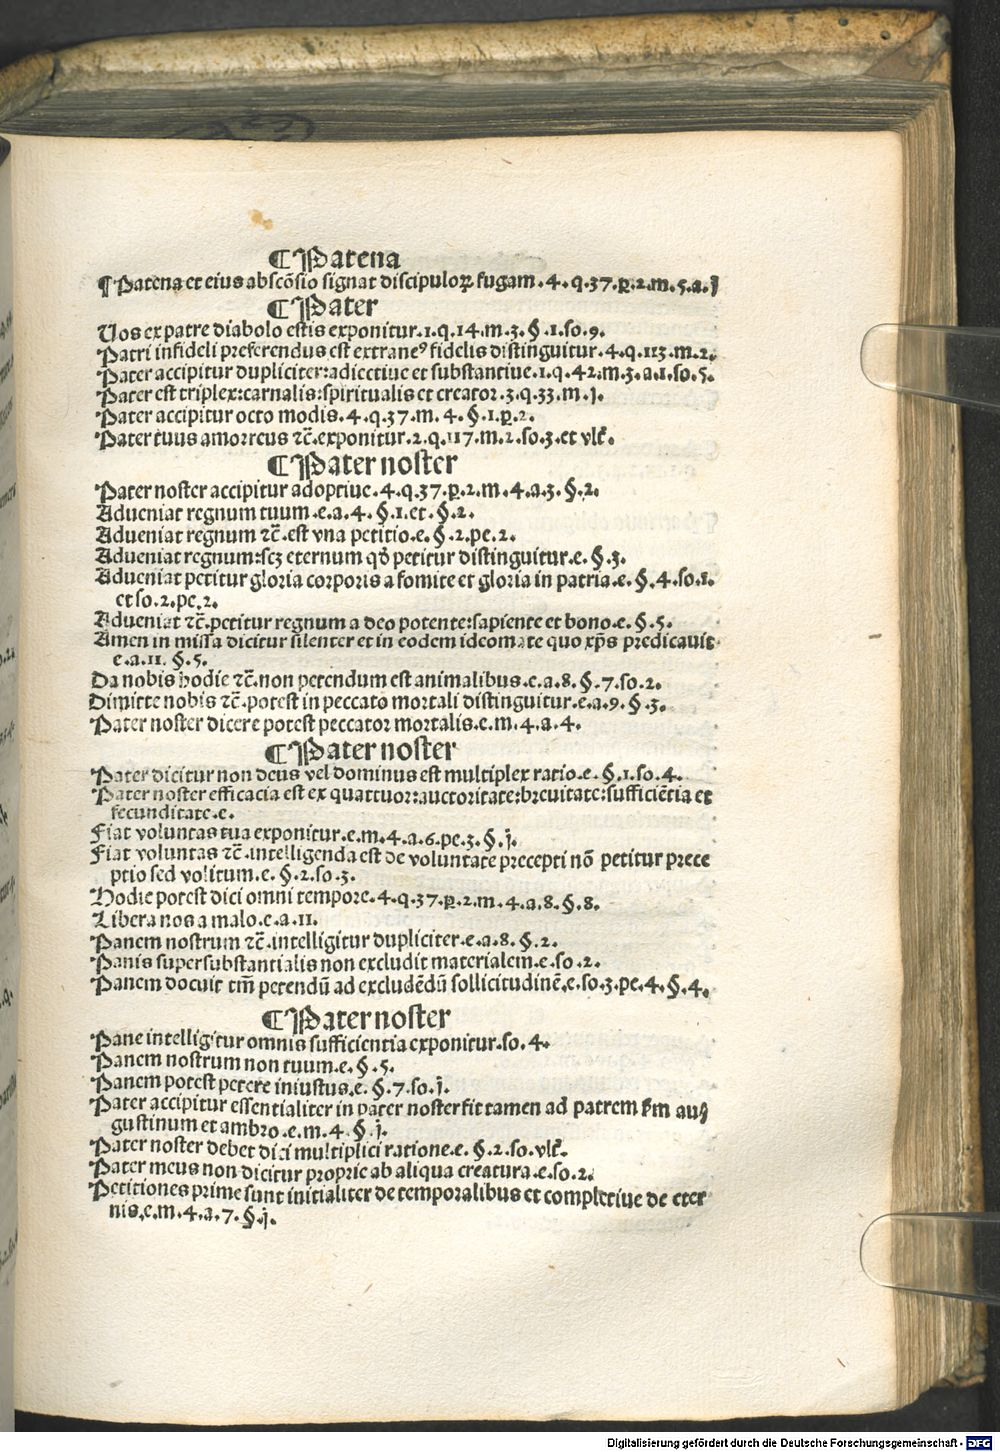 ¶Patena
¶Patena et eius abscōsio signat discipuloꝝ fugam.4.q.37.p̲.2.m.5.a.j
¶Pater
Uos ex patre diabolo estis exponitur.1.q.14.m.3.§.1.so.9.
Patri infideli preferendus est extraneꝰ fidelis distinguitur.4.q.113.m.2.
Pater accipitur dupliciter:adiectiue et substantiue.1.q.42.m.3.a.1.so.5.
Pater est triplex:carnalis:spiritualis et creator.3.q.33.m.j.
Pater accipitur octo modis.4.q.37.m.4.§.1.p̲.2.
Pater tuus amorreus ⁊c̄.exponitur.2.q.117.m.2.so.3.et vlt̄.
¶Pater noster
Pater noster accipitur adoptiue.4.q.37.p̲.2.m.4.a.3.§.2.
Adueniat regnum tuum.e.a.4.§.1.et.§.2.
Adueniat regnum ⁊c̄.est vna petitio.e.§.2.pe.2.
Adueniat regnum:scꝫ eternum qđ petitur distinguitur.e.§.3.
Adueniat petitur gloria corporis a fomite et gloria in patria.e.§.4.so.1.
et so.2.pe.2.
Adueniat ⁊c̄.petitur regnum a deo potente:sapiente et bono.e.§.5.
Amen in missa dicitur silenter et in eodem ideomate quo xp̄s predicauit
e.a.11.§.5.
Da nobis hodie ⁊c̄.non petendum est animalibus.e.a.8.§.7.so.2.
Dimitte nobis ⁊c̄.potest in peccato mortali distinguitur.e.a.9.§.3.
Pater noster dicere potest peccator mortalis.e.m.4.a.4.
¶Pater noster
Pater dicitur non deus vel dominus est multiplex ratio.e.§.1.so.4.
Pater noster efficacia est ex quattuor:auctoritate:breuitate:sufficiētia et
fecunditate.e.
Fiat voluntas tua exponitur.e.m.4.a.6.pe.3.§.j.
Fiat voluntas ⁊c̄.intelligenda est de voluntate precepti nō petitur prece
ptio sed volitum.e.§.2.so.3.
Hodie potest dici omni tempore.4.q.37.p̲.2.m.4.a.8.§.8.
Libera nos a malo.e.a.11.
Panem nostrum ⁊c̄.intelligitur dupliciter.e.a.8.§.2.
Panis supersubstantialis non excludit materialem.e.so.2.
Panem docuit tm̄ petendū ad excludēdū sollicitudinē.e.so.3.pe.4.§.4.
¶Pater noster
Pane intelligitur omnis sufficientia exponitur.so.4.
Panem nostrum non tuum.e.§.5.
Panem potest petere iniustus.e.§.7.so.j.
Pater accipitur essentialiter in pater noster fit tamen ad patrem fm̄ au
gustinum et ambro.e.m.4.§.j.
Pater noster debet dici multiplici ratione.e.§.2.so.vlt̄.
Pater meus non dicitur proprie ab aliqua creatura.e.so.2.
Petitiones prime sunt initialiter de temporalibus et completiue de eter
nis.e.m.4.a.7.§.j.
Digitalisierung gefördert durch die Deutsche Forschungsgemeinschaft - DFG